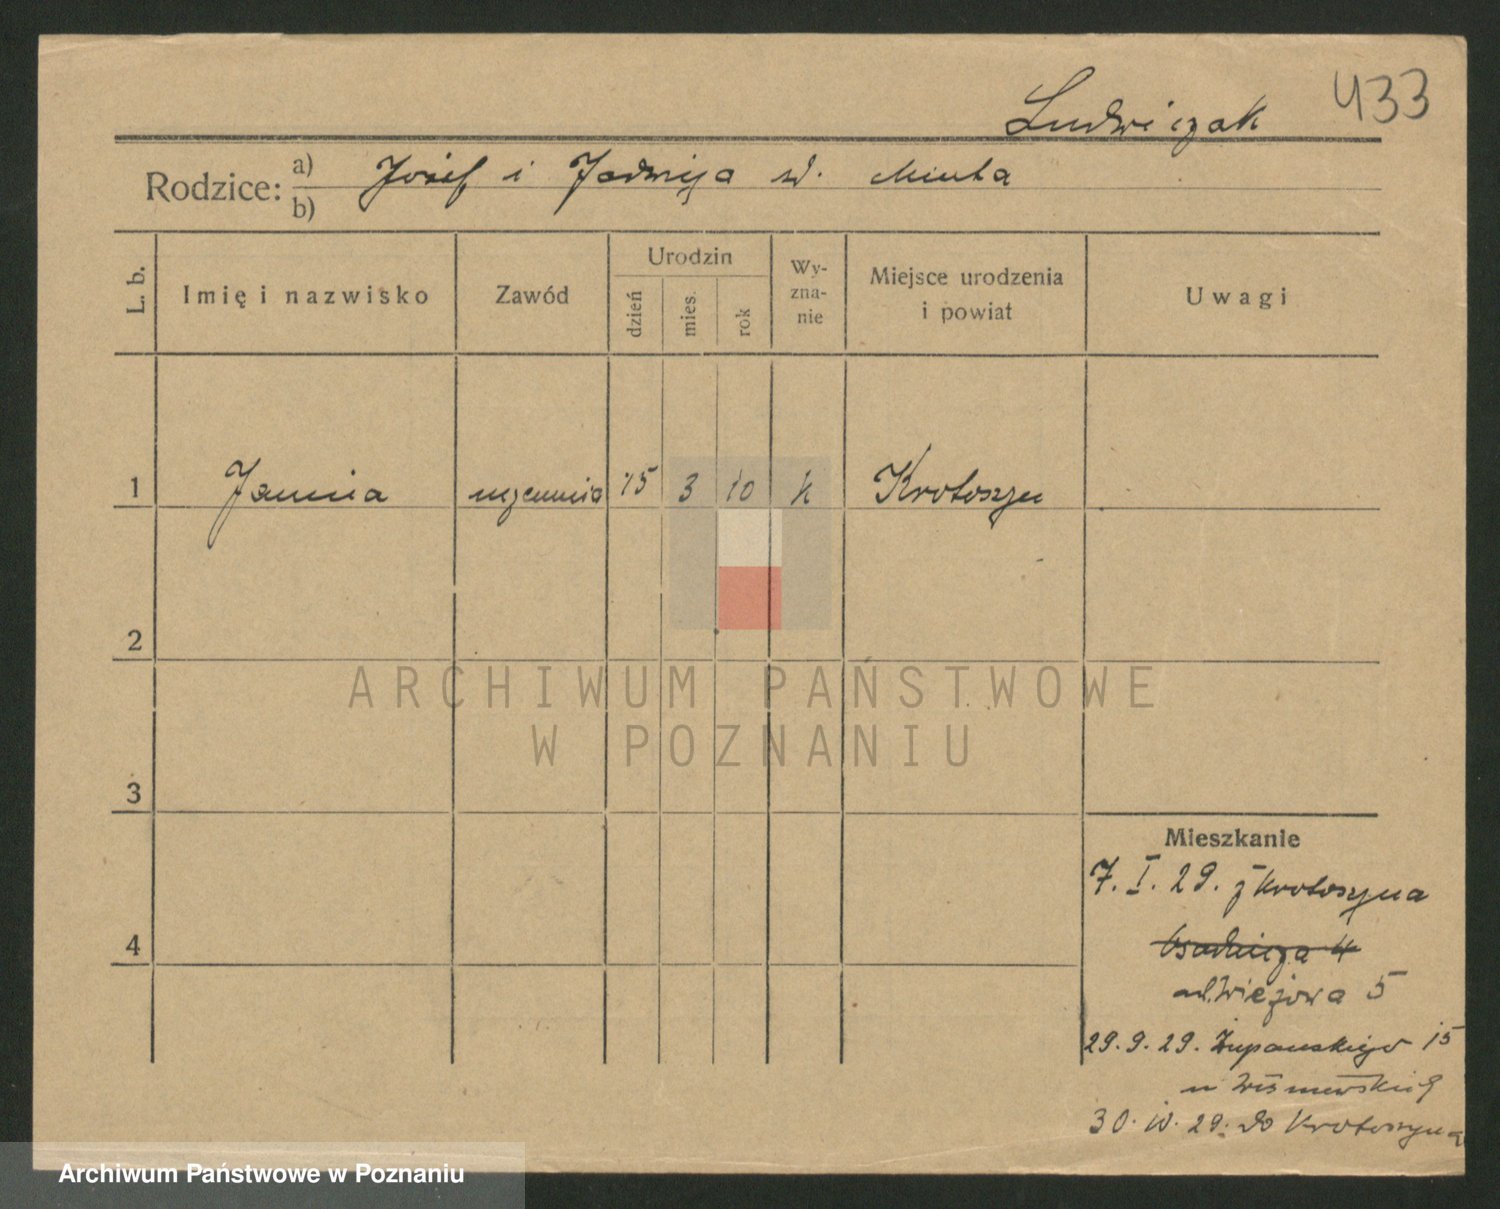 433
Ludwiczak
Rodzice: a) b) Józef i Jadwiga
L. b.
Imię i nazwisko
Zawód
Urodzin
dzień
mies.
rok
Wy-
zna-
nie
Miejsce urodzenia
i powiat
Uwagi
1 Janina uczennica 15 3 10 k Krotoszyn
2
3
4
ARCHIWUM PAŃSTWOWE
W POZNANIU
Mieszkanie
7. I. 29. z Krotoszyna
4
5
29. 9. 29. Żupańskiego 15
u Wiśniewskiej
29. do Krotoszyna
Archiwum Państwowe w Poznaniu